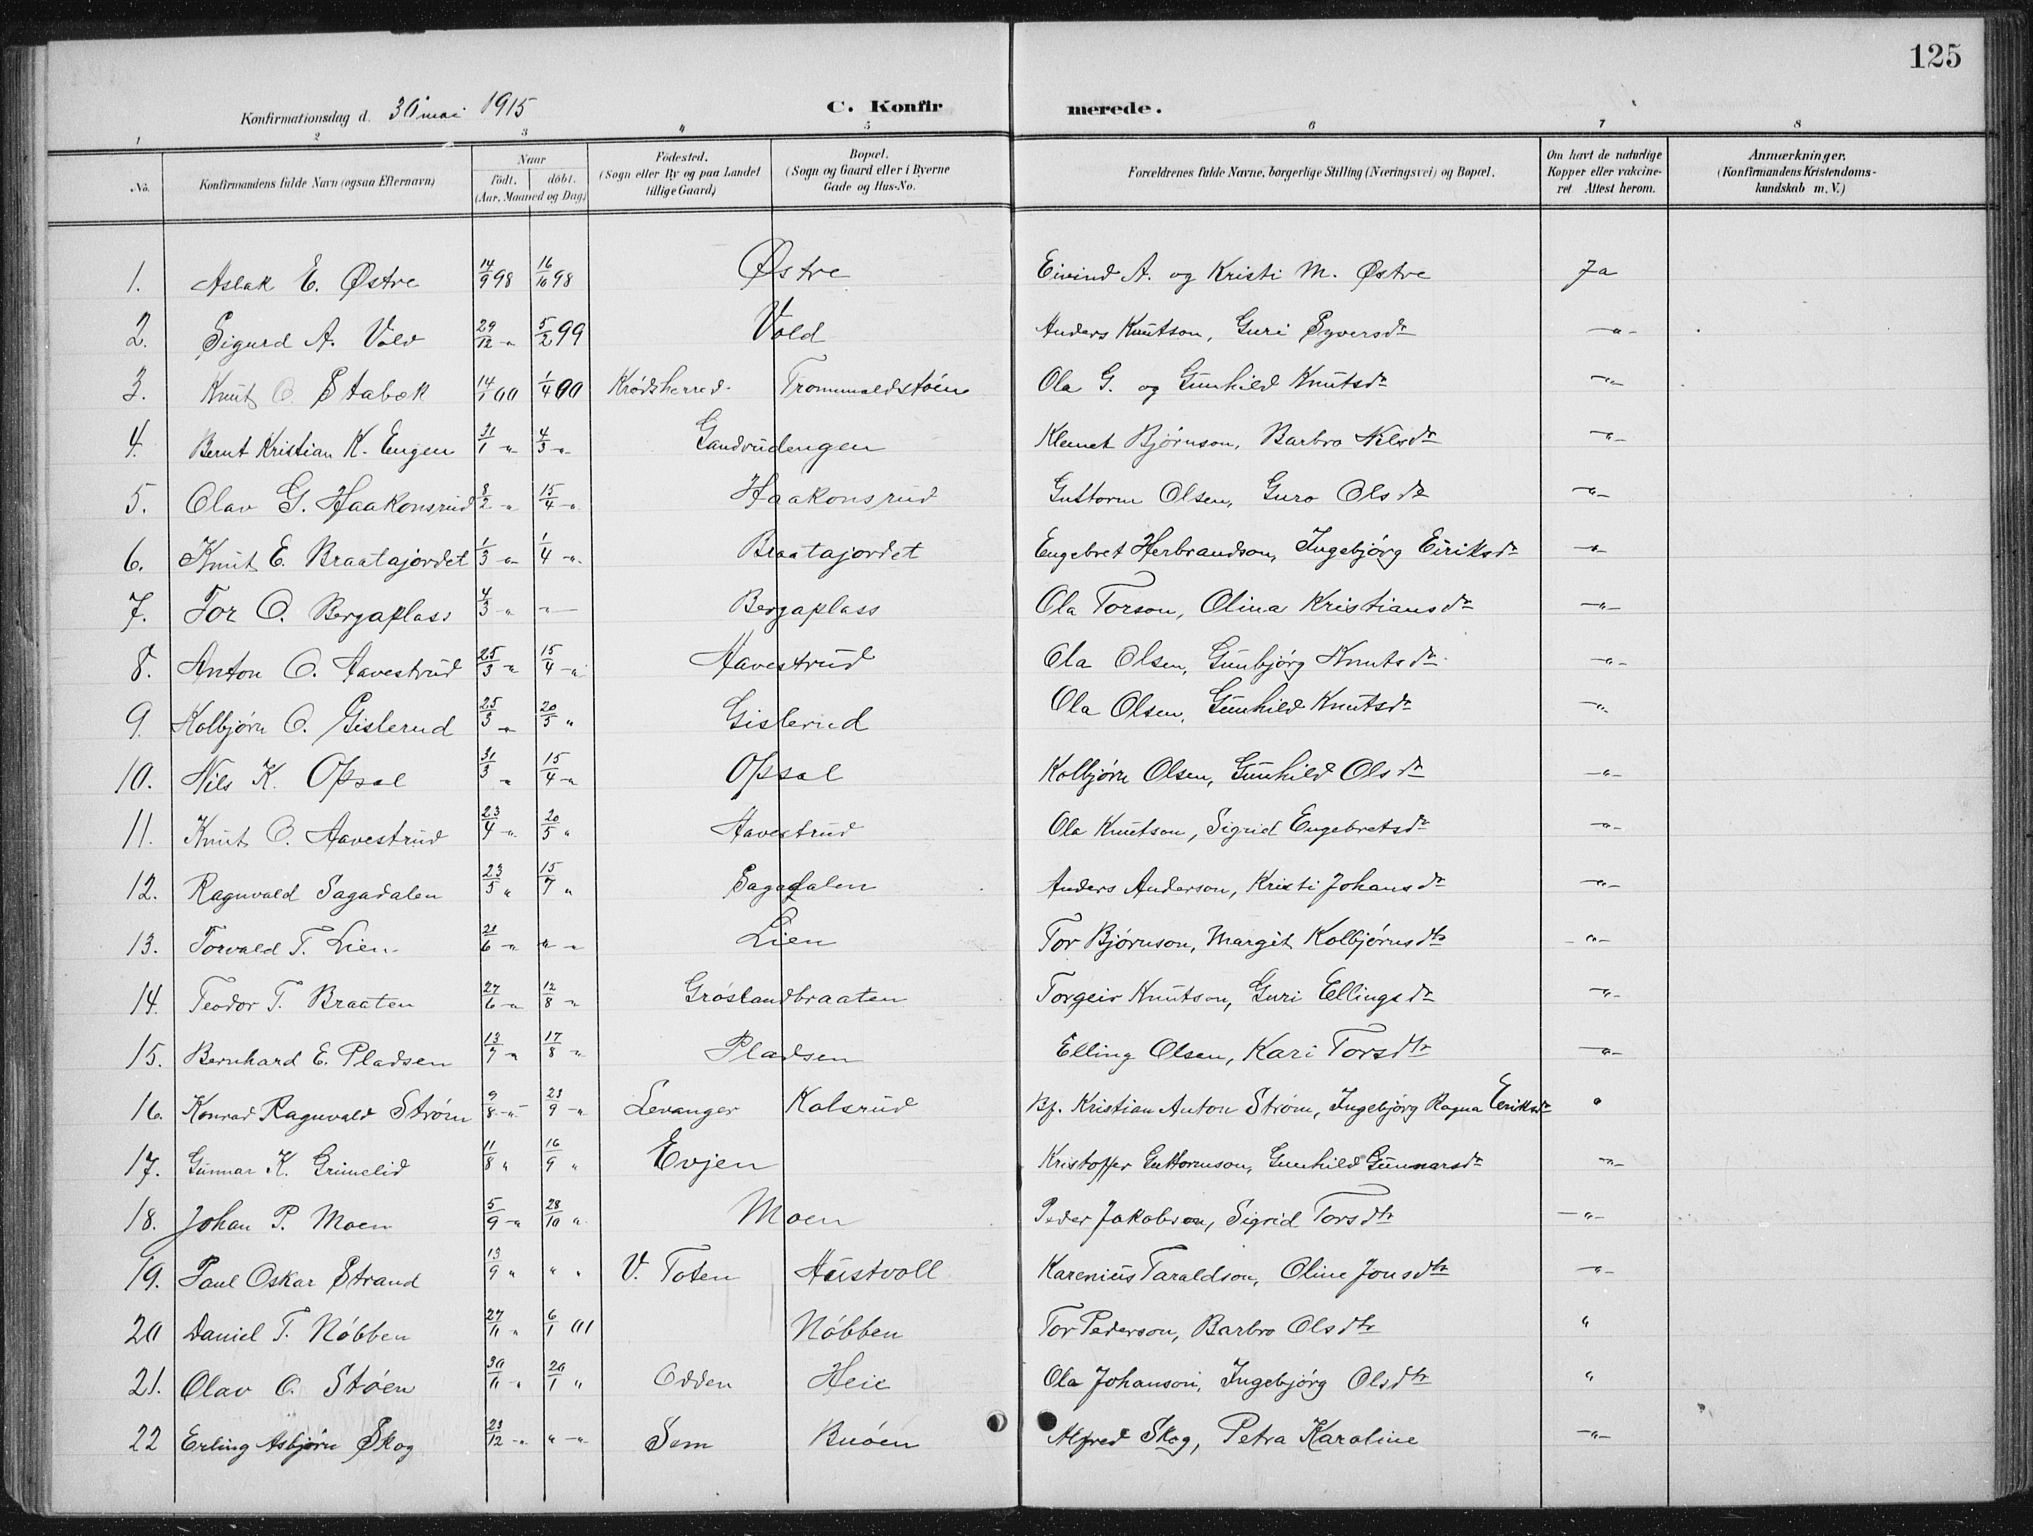 125
Konfirmationsdag d. 30 mai 1915 C. Konfirmerede.
1 2 3 4 5 6 7 8
No. Konfirmandens fulde Navn (ogsaa Efternavn) Naar født. døbt. (Aar, Maaned og Dag) Fødested. (Sogn eller By og paa Landet tillige Gaard) Bopæl. (Sogn og Gaard eller i Byerne Gade og Hus-No. Forældrenes fulde Navne, borgerlige Stilling (Næringsvei) og Bopæl. Om havt de naturlige Kopper eller vakcineret Attest herom. Anmærkninger. (Konfirmandens Kristendomskundskab m. V.)
1. Aslak E. Østre 14/9 98 16/10 98 Østre Eivind A. og Kristi M. Østre Ja
2. Sigurd A. Vold 29/12 -"- 5/2 99 Vold Anders Knutson, Guri Syversdr -"-
3. Knut O. Stabæk 14/1 00 1/4 00 Krødsherred. Trommaldstøen Ola G. og Gunhild Knutsdr -"-
4. Bernt Kristian K. Engen 31/1 -"- 4/3 -"- Gandrudengen Klemet Bjørnson, Barbro Nilsdr -"-
5. Olav G. Haakonsrud 8/2 -"- 15/4 -"- Haakonsrud Guttorm Olsen, Guro Olsdr -"-
6. Knut E. Braatajordet 1/3 -"- 1/4 -"- Braatajordet Engebret Herbrandson, Ingebjörg Eiriksdr -"-
7. Tor O. Bergaplass 4/3 " -"- Bergaplass Ola Torson, Olina Kristiansdr -"-
8. Anton O. Aavestrud 25/3 -"- 15/4 -"- Aavestrud Ola Olsen, Gunbjørg Knutsdr -"-
9. Kolbjørn O. Gislerud 25/3 -"- 20/5 " Gislerud Ola Olsen, Gunhild Knutsdr -"-
10. Nils K. Opsal 31/3 -"- 15/4 -"- Opsal Kolbjørn Olsen, Gunhild Olsdr -"-
11. Knut O. Aavestrud 23/4 -"- 20/5 " Aavestrud Ola Knutson, Sigrid Engebretsdr -"-
12. Ragnvald Sagadalen 23/5 " 15/7 " Sagadalen Anders Anderson, Kristi Johansdr -"-
13. Torvald T. Lien 21/6 -"- " -"- Lien Tor Bjørnson, Margit Kolbjørnsdtr -"-
14. Teodor T. Braaten 27/6 -"- 12/8 -"- Grøslandbraaten Torgeir Knutson, Guri Ellingsdr -"-
15. Bernhard E. Pladsen 13/7 -"- 17/8 -"- Pladsen Elling Olsen, Kari Torsdtr -"-
16. Konrad Ragnvald Strøm 9/8 -"- 23/9 -"- Levanger Kolsrud Bf. Kristian Anton Strøm, Ingebjörg Ragna Eeriksdr "
17. Gunnar K. Grimelid 11/8 " 16/9 " Evjen Kristoffer Guttormson, Gunhild Gunnarsdr -"-
18. Johan P. Moen 5/9 -"- 28/10 " Moen Peder Jakobson, Sigrid Torsdtr -"-
19. Paul Oskar Strand 13/9 " " " V. Toten Hustvoll Karenius Taraldson, Oline Jonsdtr -"-
20 Daniel T. Nøbben 27/11 " 6/1 01 Nøbben Tor Pederson, Barbro Olsdtr "
21. Olav O. Støen 30/11 -"- 20/1 " Odden Heie Ola Johanson, Ingebjörg Olsdtr "
22 Erling Asbjørn Skog 23/12 -"- " -"- Sem Buøen Alfred Skog, Petra Karoline -"-